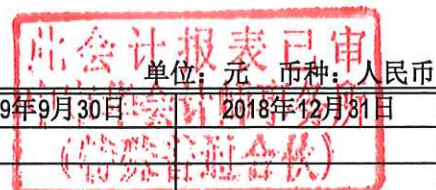 此会计报表已审
单位：元 币种：人民币
9年9月30日 2018年12月31日
会计师事务所
（特殊普通合伙）